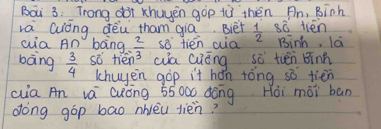 Bài 3. Trong đợt khuyên góp từ thiện An, Bình
và Cường đều tham gia. Biết 1 số tiền
của An bằng 2/3 số tiền của 2 Bình, là
bằng 3/4 số tiền của Cường số tiền Bình
khuyên góp ít hơn tổng số tiền
của An và Cường 55 000 đồng. Hỏi mỗi bạn
đóng góp bao nhiêu tiền?